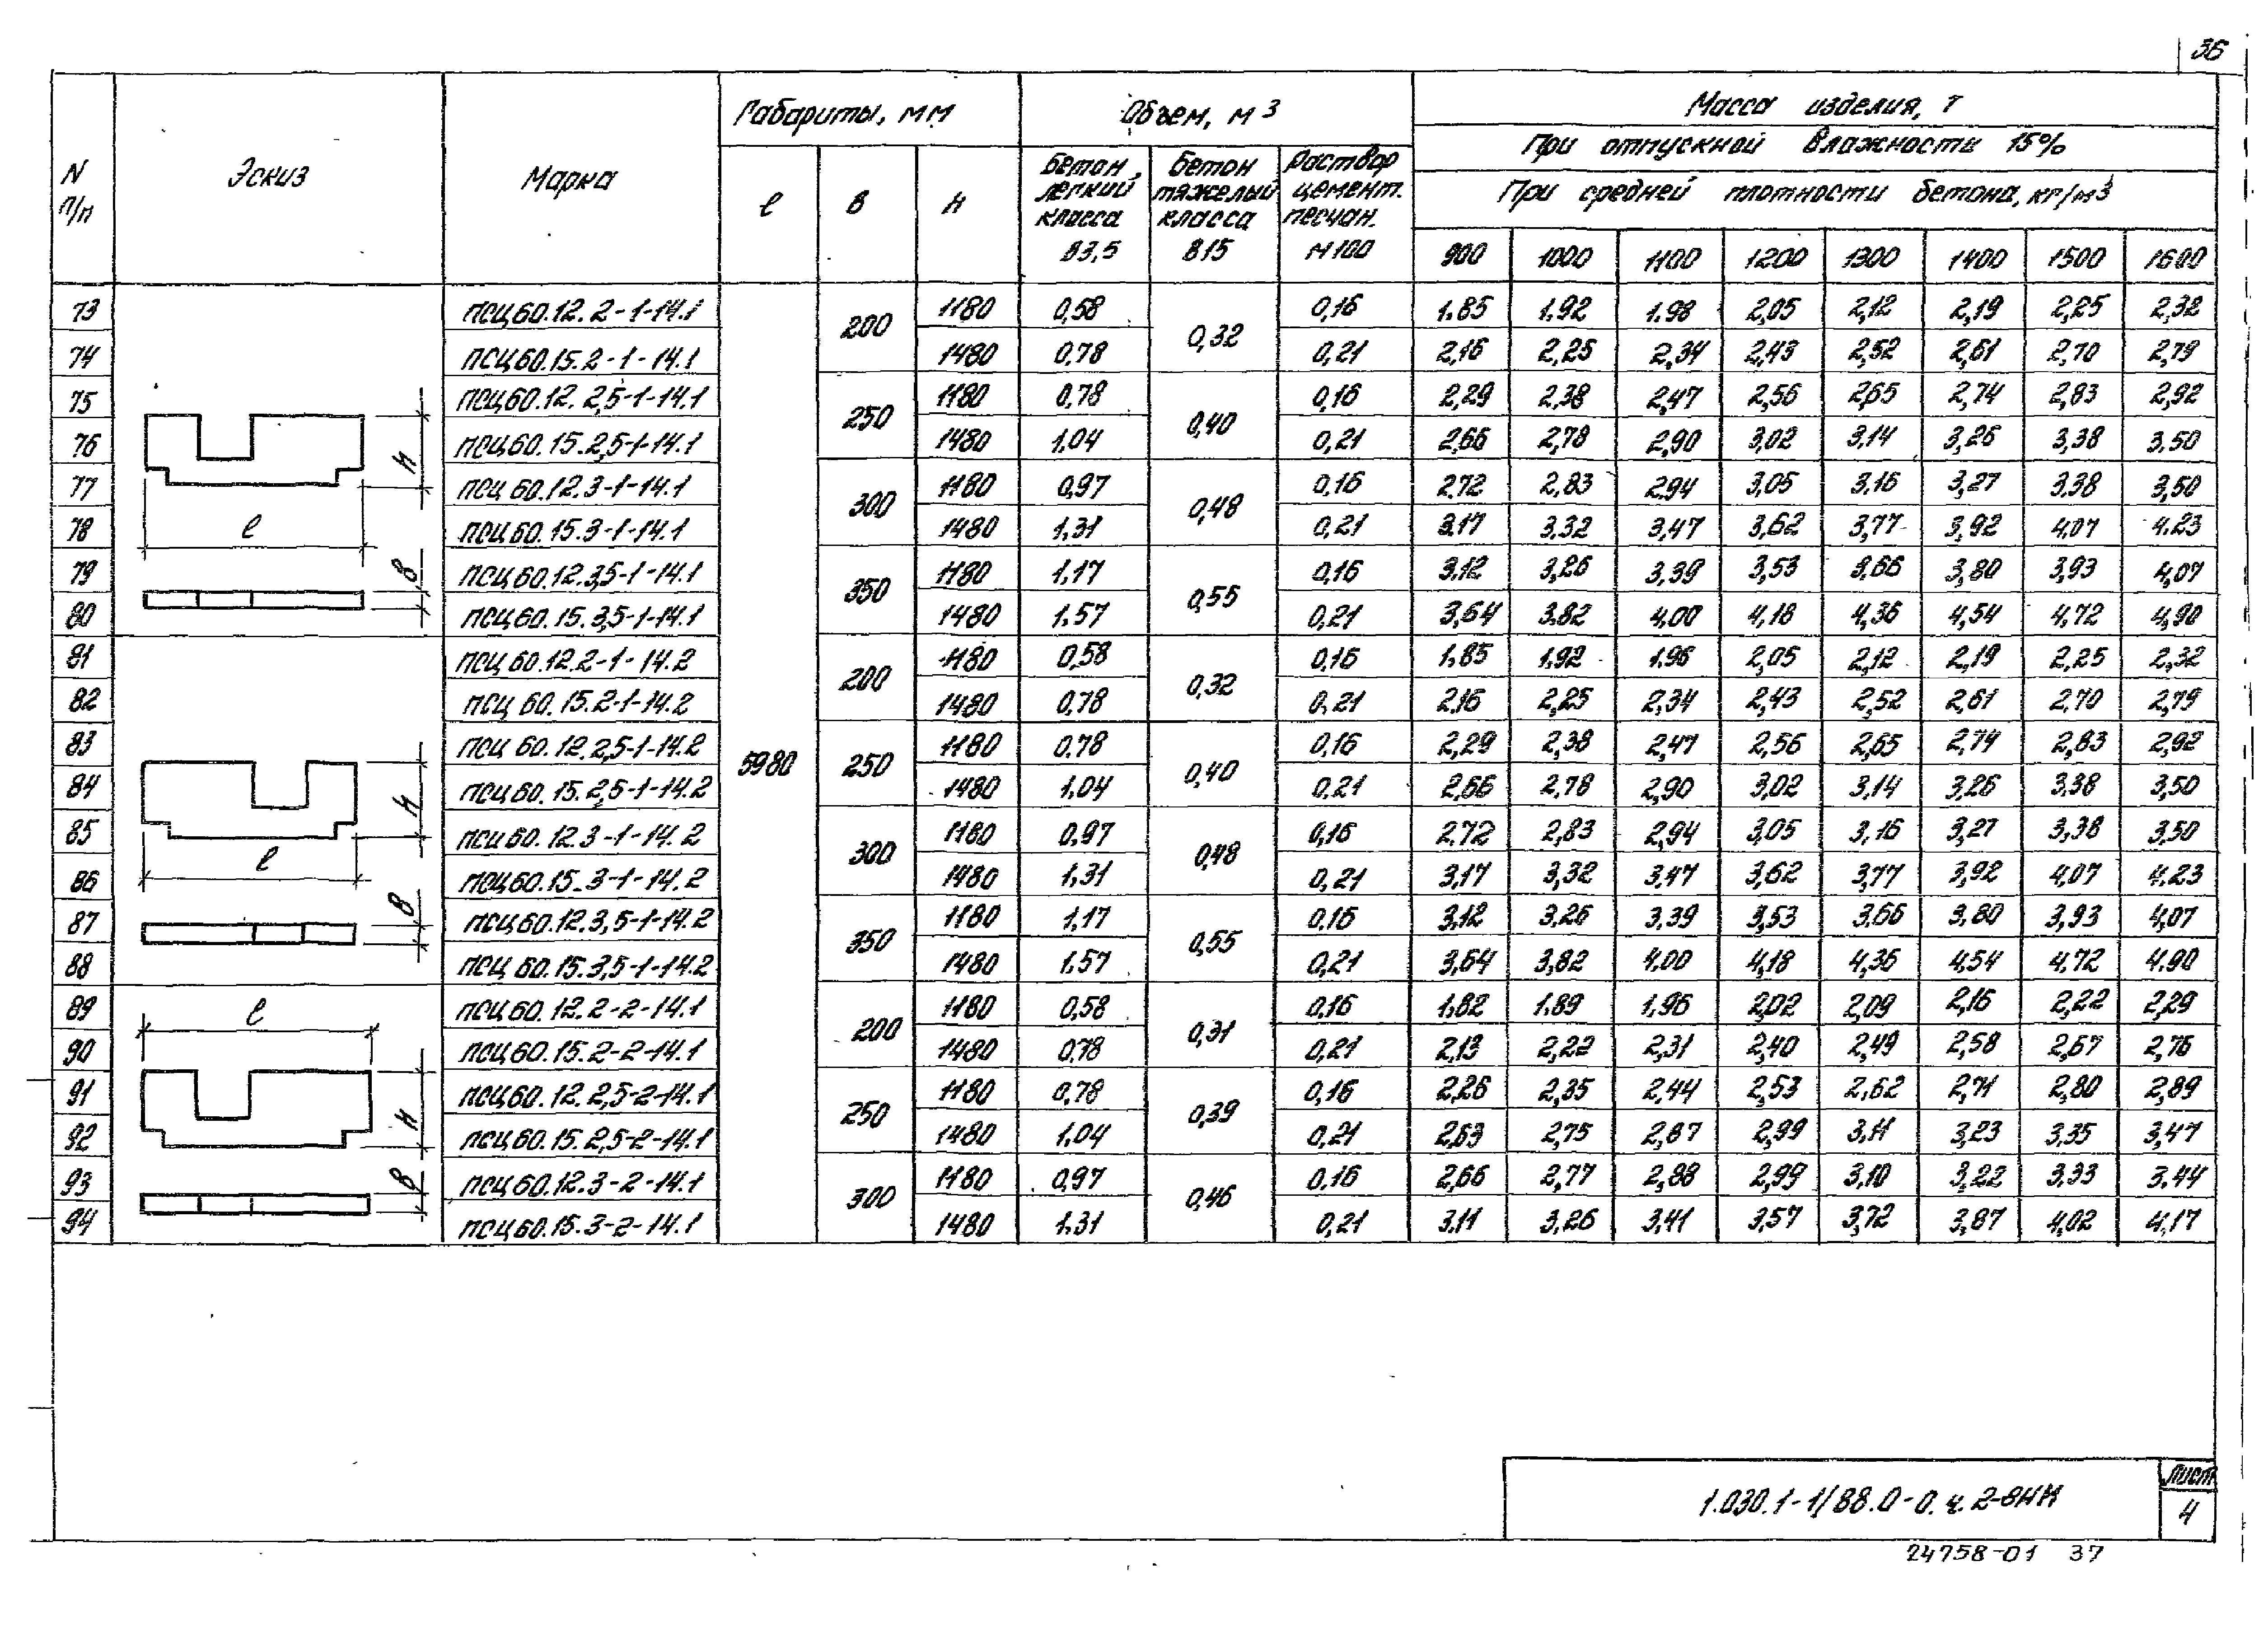 36
N п/п Эскиз Марка Габариты, мм Объем, м3 Масса изделия, т
При отпускной влажности 15%
При средней плотности бетона, кг/м3
l в н Бетон легкий класса В3,5 Бетон тяжелый класса В15 Раствор цемент. песчан. М100 900 1000 1100 1200 1300 1400 1500 1600
73 ПСЦ60.12.2-1-14.1 200 1180 0,58 0,32 0,16 1.85 1.92 1.98 2,05 2,12 2,19 2,25 2,32
74 ПСЦ60.15.2-1-14.1 1480 0,78 0,21 2,16 2,25 2,34 2,43 2,52 2,61 2,70 2,79
75 ПСЦ60.12.2,5-1-14.1 250 1180 0,78 0,40 0,16 2,29 2,38 2,47 2,56 2,65 2,74 2,83 2,92
76 ПСЦ60.15.2,5-1-14.1 1480 1,04 0,21 2,66 2,78 2,90 3,02 3,14 3,26 3,38 3.50
77 ПСЦ60.12.3-1-14.1 300 1180 0,97 0,48 0,16 2.72 2,83 2.94 3,05 3.16 3,27 3,38 3,50
78 ПСЦ60.15.3-1-14.1 1480 1.31 0,21 3.17 3,32 3,47 3,62 3,77 3,92 4,07 4.23
79 ПСЦ60.12.3,5-1-14.1 350 1180 1,17 0,55 0,16 3,12 3,26 3,39 3,53 3,66 3,80 3,93 4,07
80 ПСЦ60.15.3,5-1-14.1 1480 1.57 0,21 3,64 3.82 4,00 4,18 4,36 4,54 4,72 4,90
81 ПСЦ60.12.2-1-14.2 200 1180 0,58 0,32 0,16 1.85 1.92 1.96 2,05 2,12 2,19 2,25 2,32
82 ПСЦ60.15.2-1-14.2 1480 0,78 0,21 2,16 2,25 2,34 2,43 2,52 2,61 2,70 2,79
83 ПСЦ60.12.2,5-1-14.2 5980 250 1180 0.78 0,40 0,16 2,29 2,38 2,47 2,56 2,65 2,74 2,83 2,92
84 ПСЦ60.15.2,5-1-14.2 1480 1.04 0,21 2,66 2.78 2,90 3,02 3,14 3,26 3,38 3,50
85 ПСЦ60.12.3-1-14.2 300 1180 0,97 0,48 0,16 2.72 2,83 2,94 3,05 3,16 3,27 3,38 3,50
86 ПСЦ60.15.3-1-14.2 1480 1,31 0,21 3,17 3,32 3.47 3,62 3,77 3,92 4,07 4.23
87 ПСЦ60.12.3,5-1-14.2 350 1180 1,17 0,55 0.16 3,12 3,26 3,39 3,53 3,66 3,80 3,93 4,07
88 ПСЦ60.15.3,5-1-14.2 1480 1.57 0,21 3,64 3,82 4,00 4,18 4,36 4,54 4.72 4.90
89 ПСЦ60.12.2-2-14.1 200 1180 0,58 0,31 0,16 1.82 1.89 1,96 2,02 2,09 2,16 2,22 2,29
90 ПСЦ60.15.2-2-14.1 1480 0,78 0,21 2,13 2,22 2,31 2,40 2,49 2,58 2,67 2,76
91 ПСЦ60.12.2,5-2-14.1 250 1180 0,78 0,39 0,16 2,26 2,35 2,44 2,53 2,62 2,71 2,80 2,89
92 ПСЦ60.15.2,5-2-14.1 1480 1,04 0,21 2,63 2,75 2,87 2,99 3,11 3,23 3,35 3,47
93 ПСЦ60.12.3-2-14.1 300 1180 0,97 0,46 0.16 2,66 2,77 2,88 2,99 3,10 3,22 3,33 3.44
94 ПСЦ60.15.3-2-14.1 1480 1.31 0,21 3.11 3,26 3,41 3,57 3,72 3,87 4,02 4.17
н
l
в
н
l
в
l
н
в
1.030.1-1/88.0-0.ч.2-8НИ
Лист
4
24758-01 37